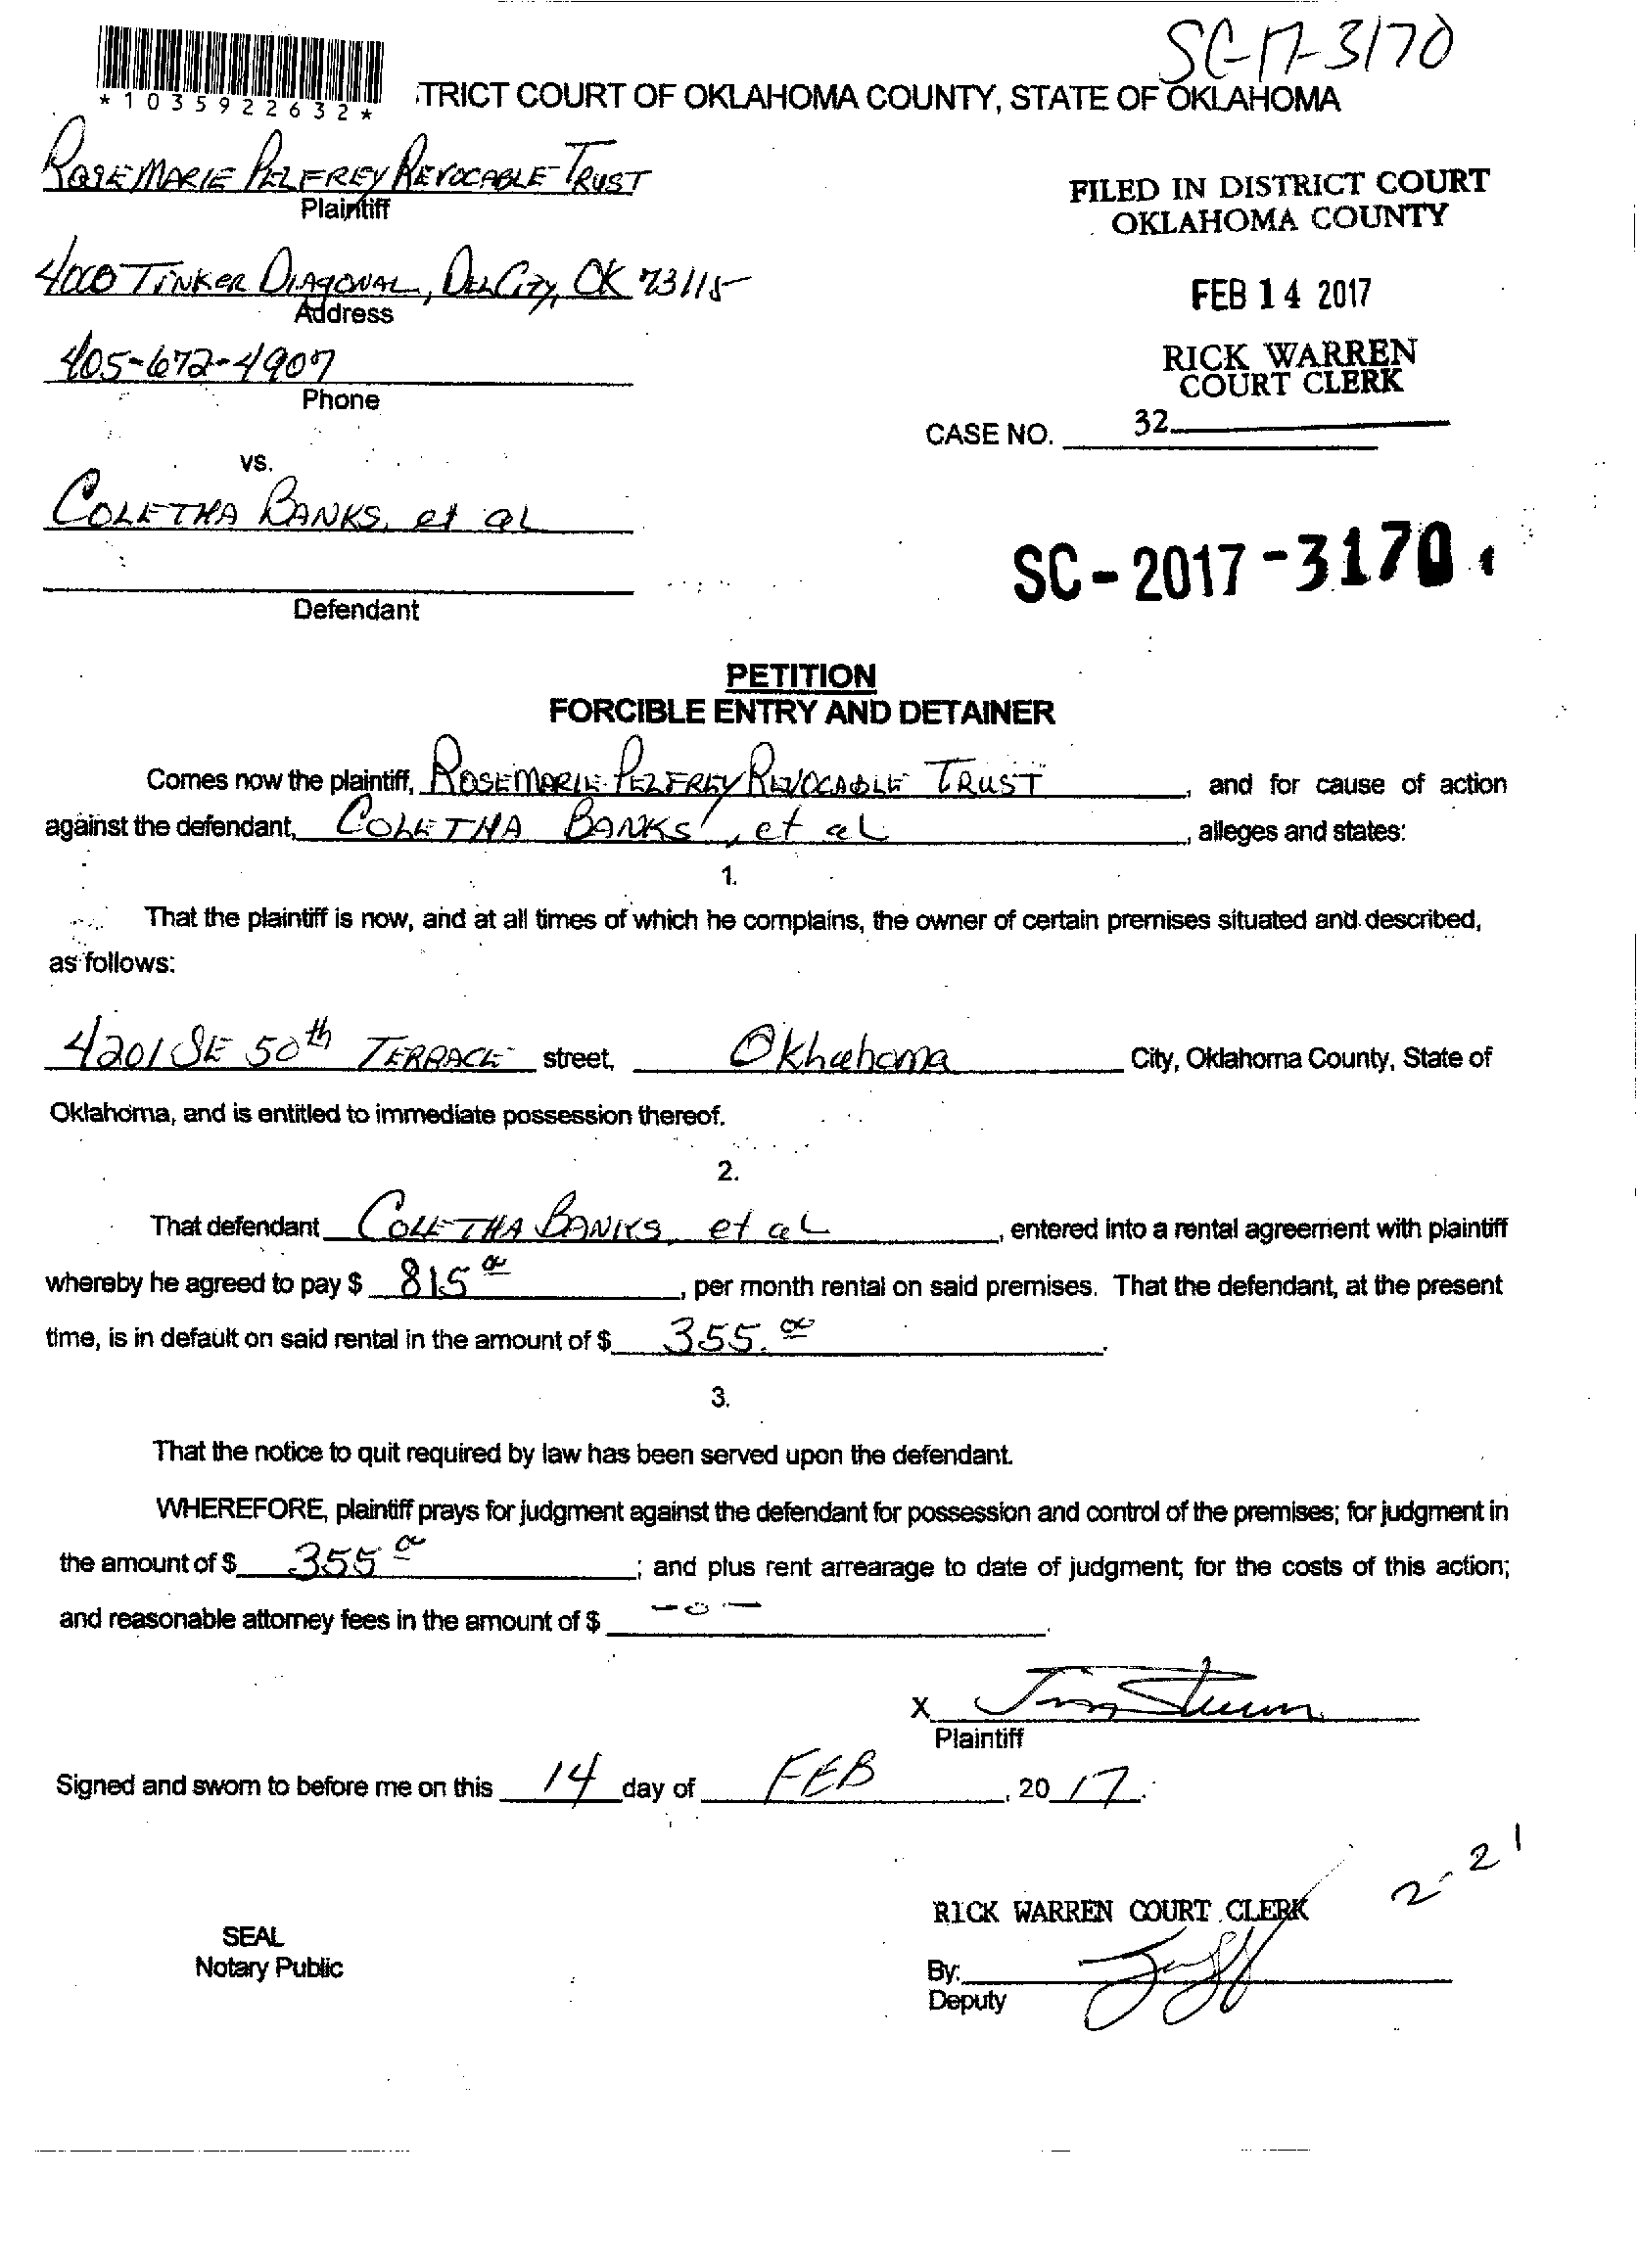 SC-17-3170
*1035922632*
TRICT COURT OF OKLAHOMA COUNTY, STATE OF OKLAHOMA
ROSEMARIE PELFREY REVOCABLE TRUST
Plaintiff
FILED IN DISTRICT COURT
OKLAHOMA COUNTY
4000 TINKER DIAGONAL, DEL CITY, OK 73115
Address
FEB 14 2017
405-672-4907
Phone
RICK WARREN
COURT CLERK
CASE NO. 32
vs.
COLETHA BANKS, et al
SC-2017-3170
Defendant
PETITION
FORCIBLE ENTRY AND DETAINER
Comes now the plaintiff, ROSEMARIE PELFREY REVOCABLE TRUST, and for cause of action
against the defendant, COLETHA BANKS, et al, alleges and states:
1.
That the plaintiff is now, and at all times of which he complains, the owner of certain premises situated and described,
as follows:
4201 SE 50th TERRACE street, Oklahoma City, Oklahoma County, State of
Oklahoma, and is entitled to immediate possession thereof.
2.
That defendant COLETHA BANKS, et al, entered into a rental agreement with plaintiff
whereby he agreed to pay $ 815 00, per month rental on said premises. That the defendant, at the present
time, is in default on said rental in the amount of $ 355.00.
3.
That the notice to quit required by law has been served upon the defendant.
WHEREFORE, plaintiff prays for judgment against the defendant for possession and control of the premises; for judgment in
the amount of $ 355 00; and plus rent arrearage to date of judgment; for the costs of this action;
and reasonable attorney fees in the amount of $ -0-.
X
Plaintiff
Signed and sworn to before me on this 14 day of FEB, 20 17.
2-21
RICK WARREN COURT CLERK
SEAL
Notary Public
By:
Deputy